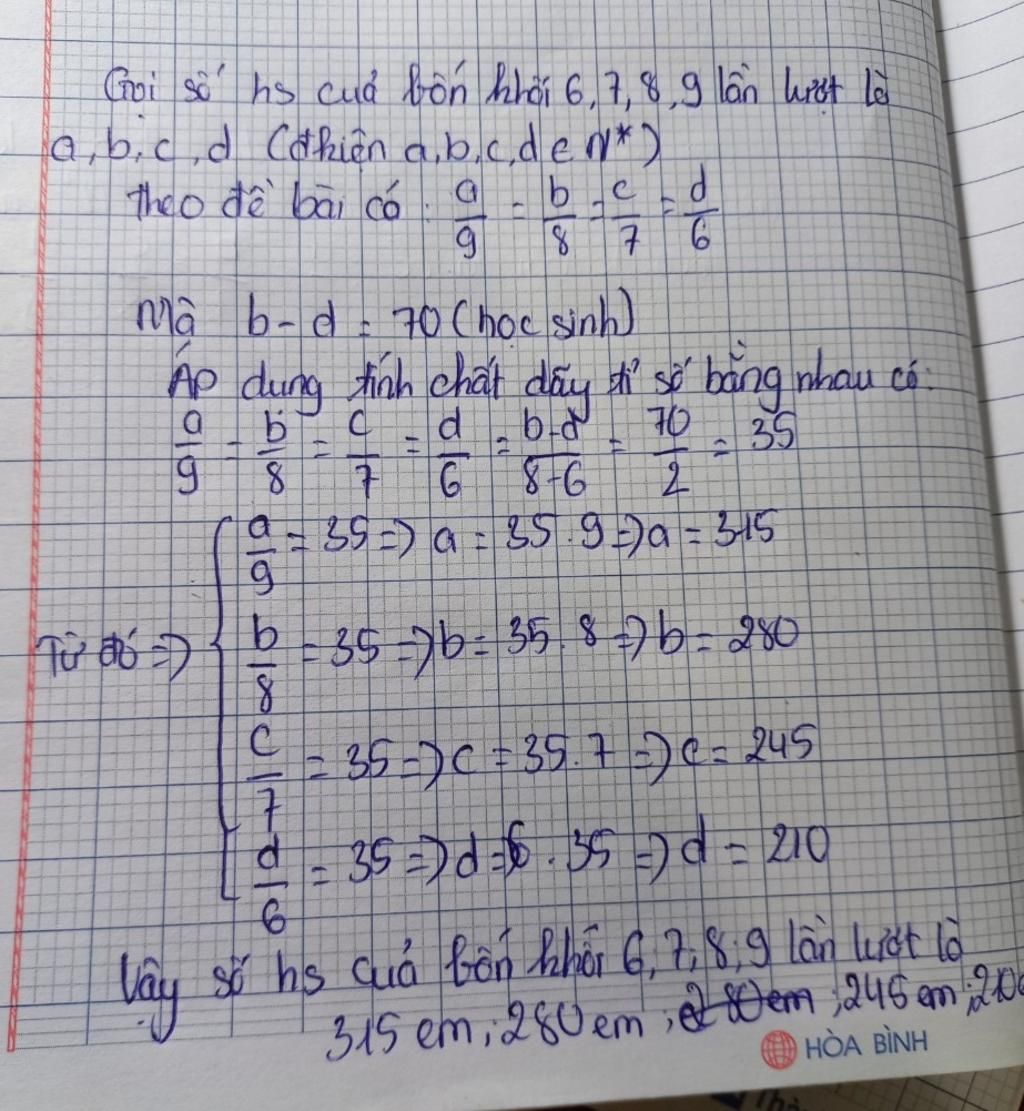 Gọi số hs cuả bốn khối 6, 7, 8, 9 lần lượt là
a, b, c, d (đkiện a, b, c, d ∈ N*)
theo đề bài có : a/9 = b/8 = c/7 = d/6
Mà b - d = 70 (học sinh)
Áp dụng tính chất dãy tỉ số bằng nhau có:
a/9 = b/8 = c/7 = d/6 = b-d/8-6 = 70/2 = 35
a/9 = 35 => a = 35 . 9 => a = 315
Từ đó => b/8 = 35 => b = 35 . 8 => b = 280
c/7 = 35 => c = 35 . 7 => c = 245
d/6 = 35 => d = 6 . 35 => d = 210
Vậy số hs cuả bốn khối 6, 7, 8, 9 lần lượt là
315 em ; 280 em ; 245 em ; 210
HÒA BÌNH